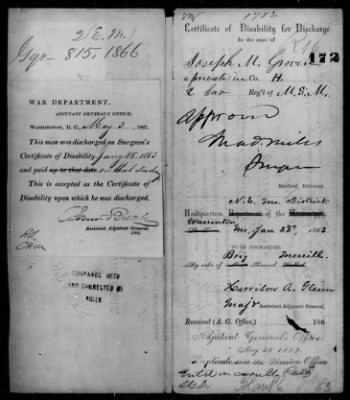 2(E.M.)
815, 1866
WAR DEPARTMENT,
ADJUTANT GENERAL'S OFFICE,
WASHINGTON, D. C., May 3, 1867.
This man was discharged on Surgeon's
Certificate of Disability Jany 28, 1863
and paid up to that date on that disch
This is accepted as the Certificate of
Disability upon which he was discharged.
Assistant Adjutant General.
COMPARED WITH
AND CORRECTED BY
ROLLS
1702
Certificate of Disability for Discharge
In the case of
172
Joseph M. Grover
a private in Co. H.
2 Cav Reg't of M.S.M.
Approved
Mad. Mills
Surgeon
Medical Director.
N.E. Mo. District
Headquarters, Department of the
Warrenton
Mo. Jan 28th, 1863
TO BE DISCHARGED.
Brig Merrill
By order of General
Harrison A. Gleim
Maj &
Assistant Adjutant General.
Received (A. G. Office,) 186
Adjutant General's Office
May 20 1863.
Duplicate sent to Pension Office